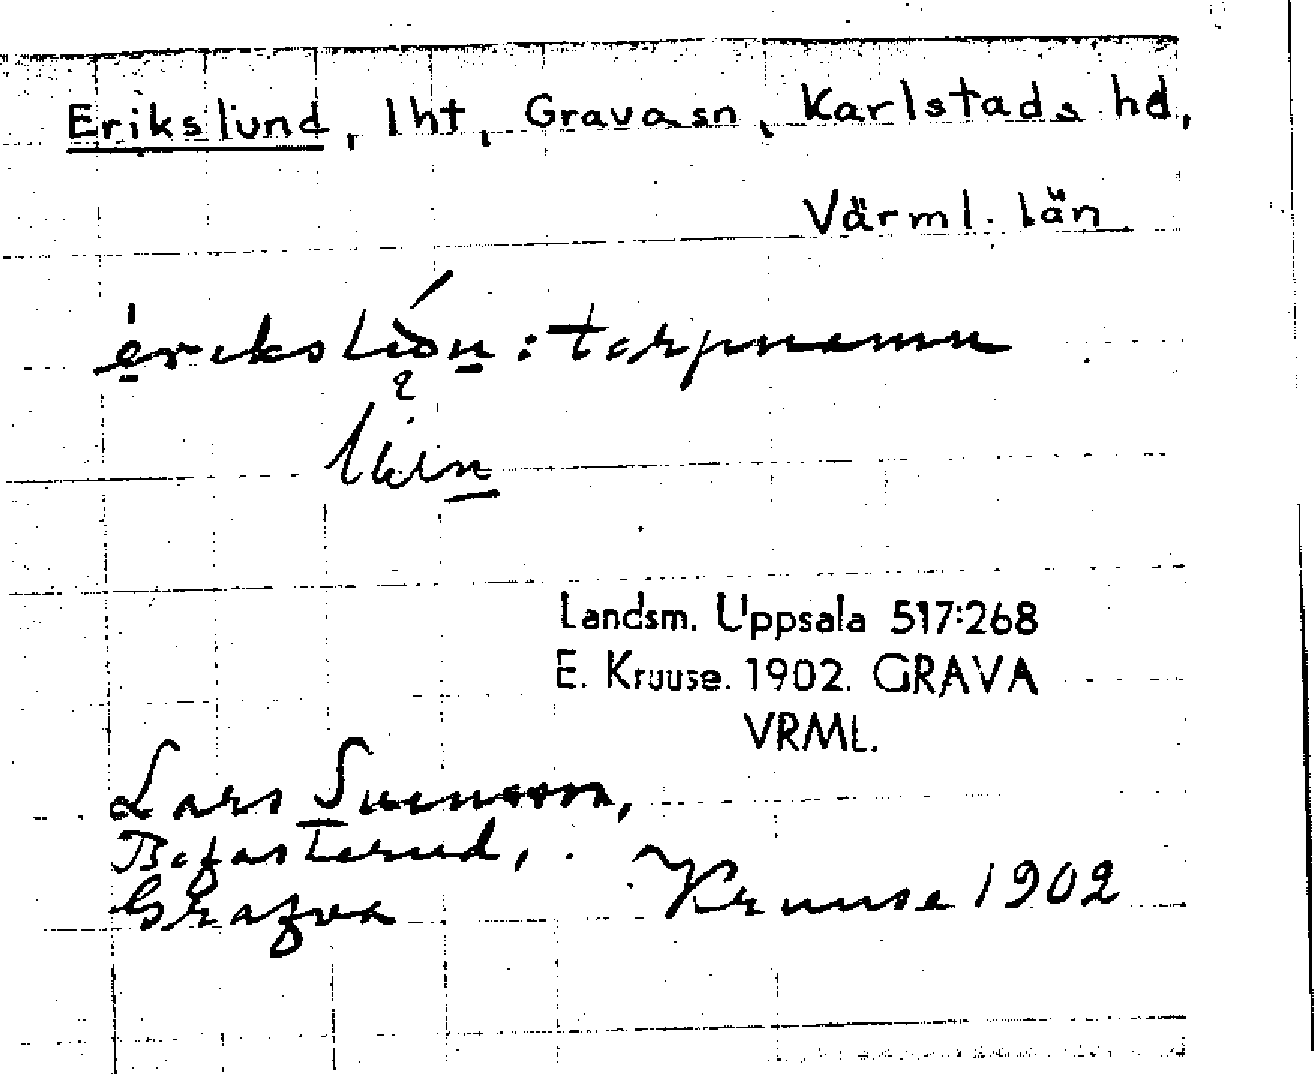 Erikslund, lht, Grava sn, Karlstads hd,
Värml. län
: torpnamn
Landsm. Uppsala 517:268
E. Kruuse. 1902. GRAVA
VRML.
Lars Svensson,
Grafva
Kruuse 1902